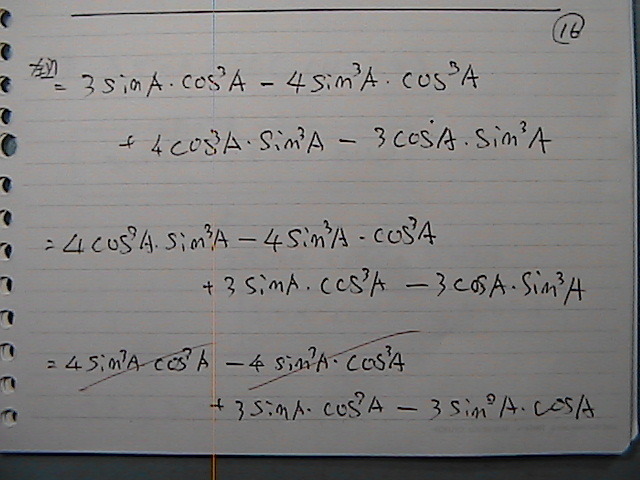 ⑯
左辺
= 3 sinA · cos³A − 4 sin³A · cos³A
+ 4 cos³A · sin³A − 3 cosA · sin³A
= 4 cos³A · sin³A − 4 sin³A · cos³A
+ 3 sinA · cos³A − 3 cosA · sin³A
= 4 sin³A cos³A − 4 sin³A · cos³A
+ 3 sinA · cos³A − 3 sin³A · cosA